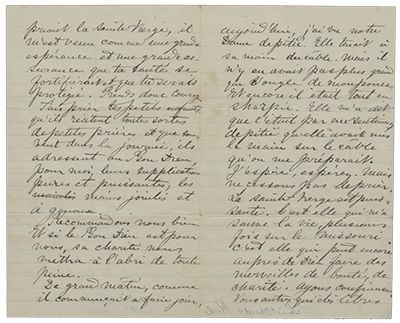 priait la Sainte Vierge, il
m'est venu comme une grande
espérance et une grande as-
surance que ta Santé se
fortifierait et que tu serais
protégé. Prends donc courage
Fais prier les petits enfants
qu'ils récitent toutes sortes
de petites prières et que sou-
vent dans la journée, ils
adressent au Bon Dieu
pour moi, leurs supplications
pures et puissantes, les
mains jointes et
à genoux.
Recommandons nous bien
Et si le Bon Dieu est pour
nous, sa charité nous
mettra à l'abri de toute
peine.
De grand matin, comme
il commençait à faire jour,
aujourd'hui, j'ai vu notre
Dame de pitié. Elle tenait à
sa main du cable. Mais il
n'y en avait pas plus grand
que l'ongle de mon pouce
Et encore il était tout en
charpie. Elle m'a dit
que c'était par
de pitié qu'elle avait mis
la main sur le cable
qu'on me préparait.
J'espère, espérez. Mais
ne cessons pas de prier.
La Sainte Vierge est puis-
sante. C'est elle qui m'a
sauvé la vie, plusieurs
fois sur le Missouri
C'est elle qui peut encore
auprès de Dieu faire des
merveilles de bonté, de
charité. Ayons confiance